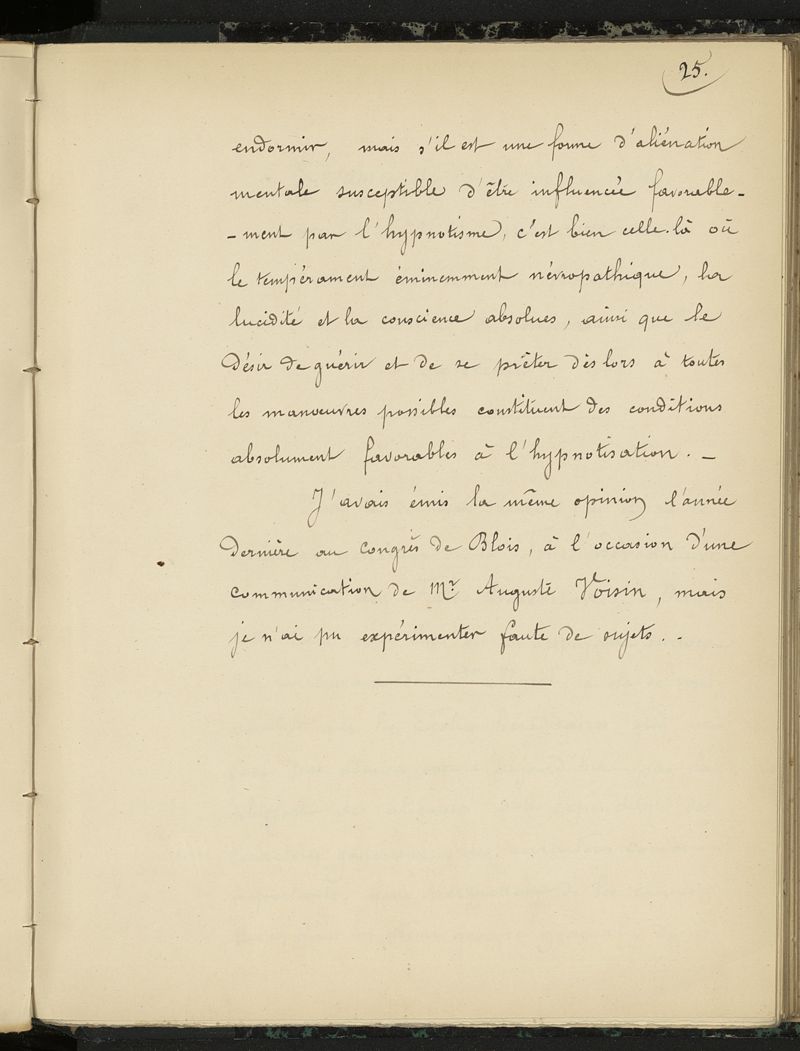 25.
endormir, mais s'il est une forme d'aliénation
mentale susceptible d'être influencée favorable-
-ment par l'hypnotisme, c'est bien celle-là où
le tempérament éminemment névropathique, la
lucidité et la conscience absolues, ainsi que le
désir de guérir et de se prêter dès lors à toutes
les manoeuvres possibles constituent des conditions
absolument favorables à l'hypnotisation. -
J'avais émis la même opinion l'année
dernière au Congrès de Blois, à l'occasion d'une
communication de Mr. Auguste Voisin, mais
je n'ai pu expérimenter faute de sujets. -